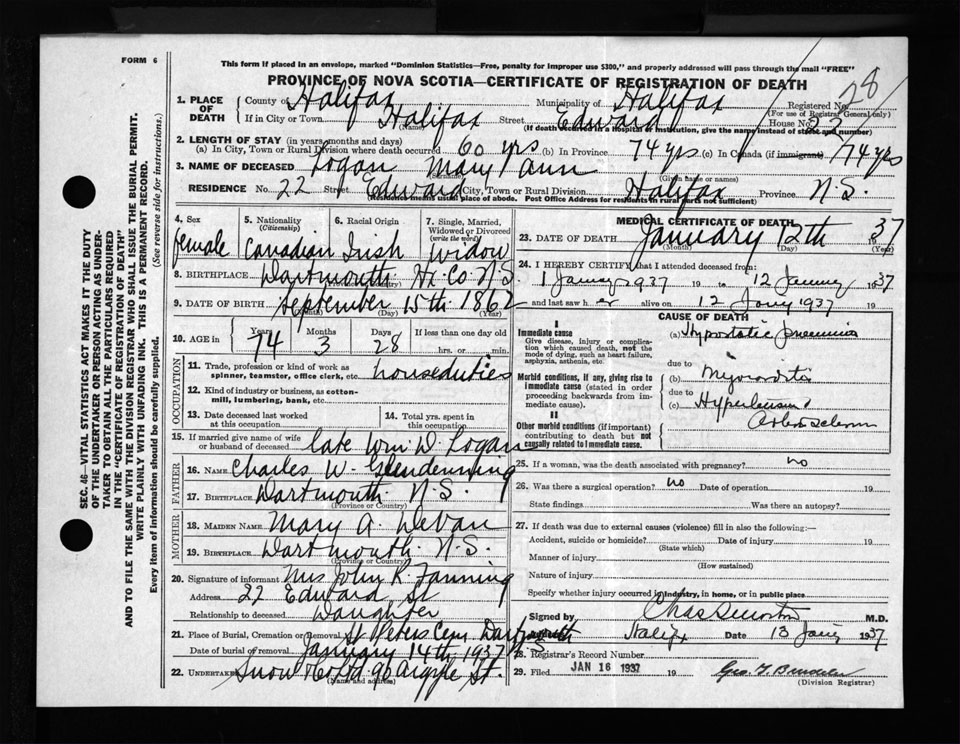 FORM 6
This form if placed in an envelope, marked "Dominion Statistics—Free, penalty for improper use $300," and properly addressed will pass through the mail "FREE"
PROVINCE OF NOVA SCOTIA—CERTIFICATE OF REGISTRATION OF DEATH
28
1. PLACE OF DEATH County of Halifax Municipality of Halifax Registered No. (For use of Registrar General only)
If in City or Town Halifax (Name) Street Edward House No. 22
(If death occurred in a hospital or institution, give the name instead of street and number)
2. LENGTH OF STAY (in years, months and days)
(a) In City, Town or Rural Division where death occurred 60 yrs (b) In Province 74 yrs (c) In Canada (if immigrant) 74 yrs
3. NAME OF DECEASED Logan Mary Ann
(Surname) (Given name or names)
RESIDENCE No. 22 Street Edward City, Town or Rural Division Halifax Province N.S.
(Residence means usual place of abode. Post Office Address for residents in rural parts not sufficient)
4. Sex female
5. Nationality (Citizenship) Canadian
6. Racial Origin Irish
7. Single, Married, Widowed or Divorced (write the word) widow
8. BIRTHPLACE Dartmouth Hx. Co N.S.
9. DATE OF BIRTH September 15th 1862
(Month) (Day) (Year)
10. AGE in Years 74 Months 3 Days 28 If less than one day old hrs. or min.
OCCUPATION
11. Trade, profession or kind of work as spinner, teamster, office clerk, etc. houseduties
12. Kind of industry or business, as cotton-mill, lumbering, bank, etc.
13. Date deceased last worked at this occupation
14. Total yrs. spent in this occupation
15. If married give name of wife or husband of deceased late Wm D. Logan
FATHER
16. NAME Charles W. Glendenning
17. BIRTHPLACE Dartmouth N.S.
(Province or Country)
MOTHER
18. MAIDEN NAME Mary A. DeVan
19. BIRTHPLACE Dartmouth N.S.
(Province or Country)
20. Signature of informant Mrs John R. Fanning
Address 22 Edward St
Relationship to deceased Daughter
21. Place of Burial, Cremation or Removal St Peters Cem. Dartmouth N.S.
Date of burial or removal January 14th 1937
22. UNDERTAKER Snow & Co Ltd. 90 Argyle St.
(Name and address)
MEDICAL CERTIFICATE OF DEATH
23. DATE OF DEATH January 12th 1937
(Month) (Day) (Year)
24. I HEREBY CERTIFY that I attended deceased from:
1 January 1937 19 to 12 January 1937
and last saw her alive on 12 Jany 1937 19
CAUSE OF DEATH
I
Immediate cause
Give disease, injury or complication which caused death, not the mode of dying, such as heart failure, asphyxia, asthenia, etc.
(a) Hypostatic Pneumonia
due to
Morbid conditions, if any, giving rise to immediate cause (stated in order proceeding backwards from immediate cause).
(b) Myocarditis
due to
(c) Hypertension &
II
Other morbid conditions (if important) contributing to death but not causally related to immediate cause.
25. If a woman, was the death associated with pregnancy? no
26. Was there a surgical operation? no Date of operation 19
State findings Was there an autopsy?
27. If death was due to external causes (violence) fill in also the following:—
Accident, suicide or homicide? Date of injury 19
(State which)
Manner of injury
(How sustained)
Nature of injury
Specify whether injury occurred in industry, in home, or in public place
Signed by M.D.
Address Halifx Date 13 Jany 1937
28. Registrar's Record Number
29. Filed JAN 16 1937 19
(Division Registrar)
SEC. 46—VITAL STATISTICS ACT MAKES IT THE DUTY
OF THE UNDERTAKER OR PERSON ACTING AS UNDER-
TAKER TO OBTAIN ALL THE PARTICULARS REQUIRED
IN THE "CERTIFICATE OF REGISTRATION OF DEATH"
AND TO FILE THE SAME WITH THE DIVISION REGISTRAR WHO SHALL ISSUE THE BURIAL PERMIT.
WRITE PLAINLY WITH UNFADING INK. THIS IS A PERMANENT RECORD.
Every item of information should be carefully supplied. (See reverse side for instructions.)